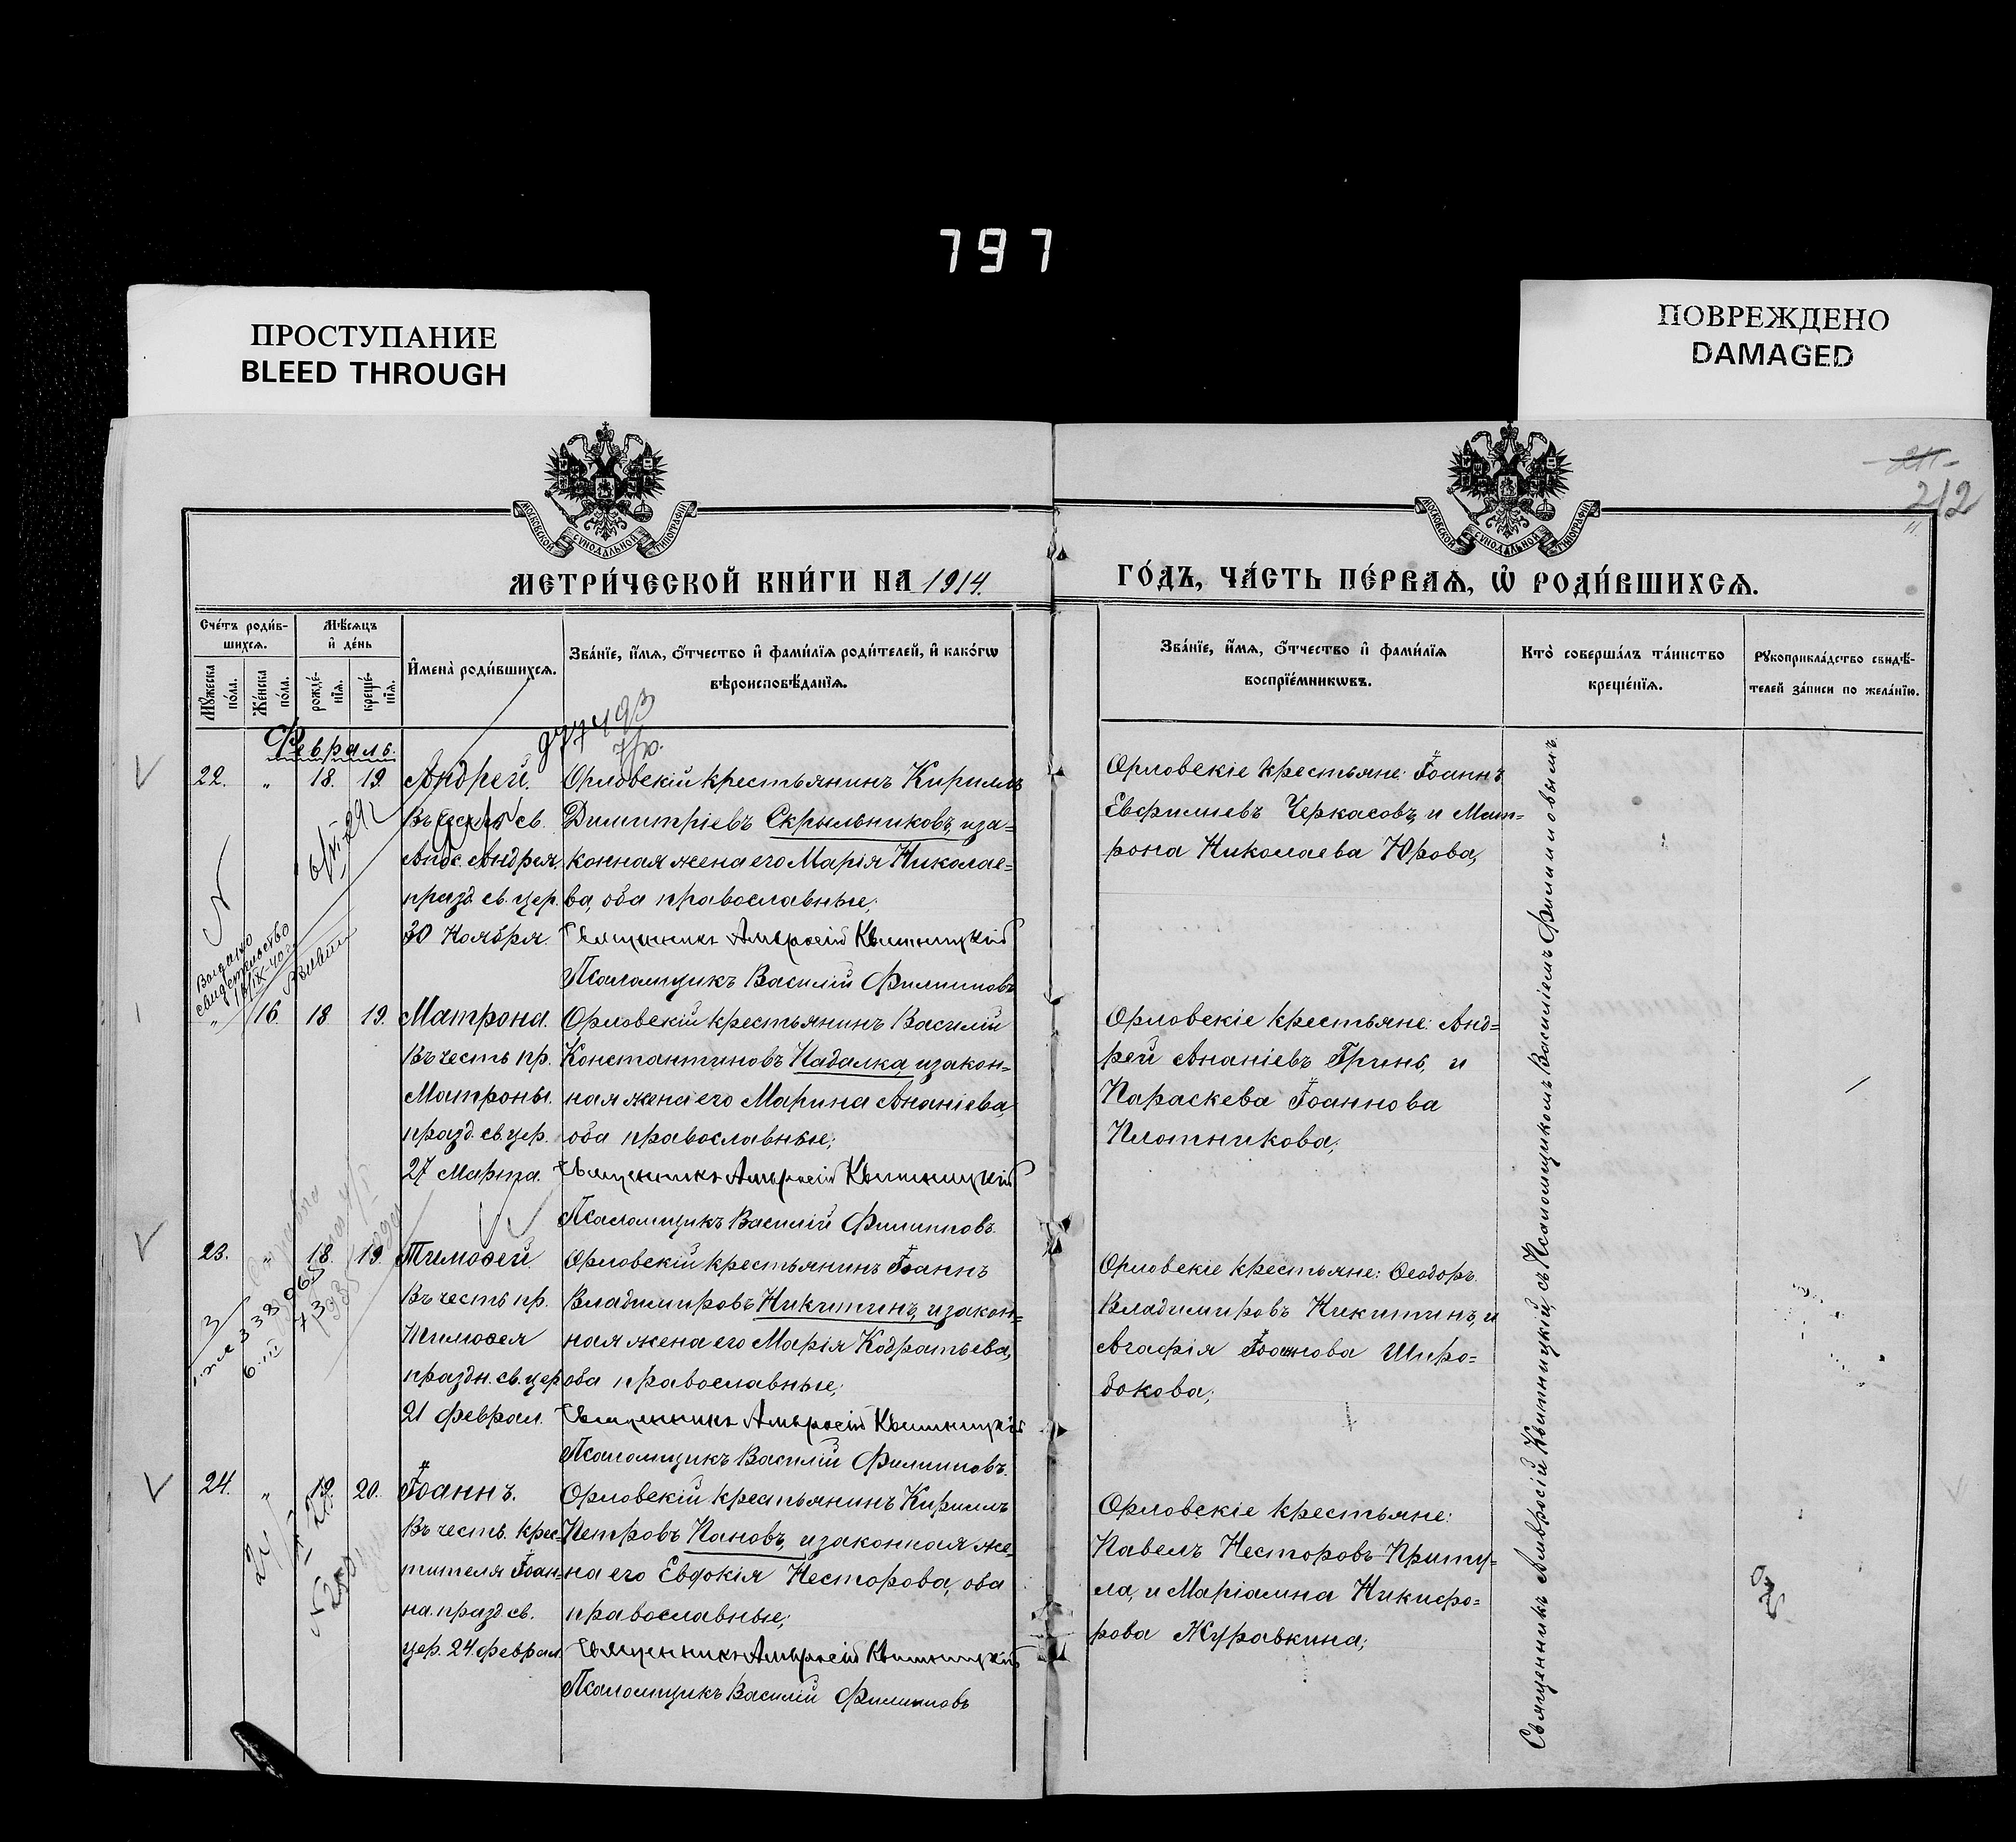 797
ПРОСТУПАНИЕ
BLEED THROUGH
ПОВРЕЖДЕНО
DAMAGED
МОСКОВСКОЙ СѴНОДАЛЬНОЙ ТИПОГРАФІИ
МОСКОВСКОЙ СѴНОДАЛЬНОЙ ТИПОГРАФІИ
211
212
МЕТРИ́ЧЕСКОЙ КНИ́ГИ НА 1914.
ГО́ДЪ, ЧА́СТЬ ПЕ́РВАѦ, Ѡ҆ РОДИ́ВШИХСѦ.
Сче́тъ роди́в-
шихсѧ.
Мꙋ́жеска по́ла.
Же́нска по́ла.
Мѣ́сѧцъ
и҆ де́нь
рожде́-
нїѧ.
креще́-
нїѧ.
И҆мена̀ роди́вшихсѧ.
Зва́нїе, и҆́мѧ, ѻ҆́тчество и҆ фами́лїѧ роди́телей, и҆ како́гѡ
вѣроисповѣ́данїѧ.
Зва́нїе, и҆́мѧ, ѻ҆́тчество и҆ фами́лїѧ
воспрїе́мникѡвъ.
Кто̀ соверша́лъ та́инство
креще́нїѧ.
Рꙋкоприкла́дство свидѣ́-
телей за́писи по жела́нїю.
Февраль.
22. " 18. 19. Андрей.
Въ честь св.
Апос. Андрея.
празд. св. цер.
30 Ноября.
Орловскій крестьянинъ Кириллъ
Димитріевъ Скрыльниковъ, и за-
конная жена его Марія Николае-
ва, оба православные;
Священникъ Амвросій Квитницкій
Псаломщикъ Василій Филипповъ
Орловскіе крестьяне: Іоаннъ
Евфиміевъ Черкасовъ, и Мат-
рона Николаева Юрова,
Выдано
свидетельство
" 16. 18 19. Матрона.
Въ честь пр.
Матроны.
празд. св. цер.
27 Марта.
Орловскій крестьянинъ Василій
Константиновъ Падалка, и закон-
ная жена его Марина Ананіева,
оба православные;
Священникъ Амвросій Квитницкій
Псаломщикъ Василій Филипповъ.
Орловскіе крестьяне: Анд-
рей Ананіевъ Гринь, и
Параскева Іоаннова
Плотникова;
23. " 18. 19. Тимоѳей.
Въ честь пр.
Тимоѳея
праздн. св. цер
21 феврал.
Орловскій крестьянинъ Іоаннъ
Владимировъ Никитинъ, и закон-
ная жена его Марія Кодратьева,
оба православные;
Священникъ Амвросій Квитницкій
Псаломщикъ Василій Филипповъ.
Орловскіе крестьяне: Ѳеодоръ
Владимировъ Никитинъ, и
Агафія Іоаннова Широ-
бокова;
24. " 19. 20. Іоаннъ.
Въ честь. Крес-
тителя Іоан-
на. празд св.
цер. 24 феврал.
Орловскій крестьянинъ Кириллъ
Петровъ Пановъ, и законная же-
на его Евдокія Несторова, оба
православные;
Священникъ Амвросій Квитницкій
Псаломщикъ Василій Филипповъ
Орловскіе крестьяне:
Павелъ Несторовъ Приту-
ла, и Маріамна Никифо-
рова Журавкина;
Священникъ Амвросій Квитницкій, съ Псаломщикомъ Василіемъ Филипповымъ.